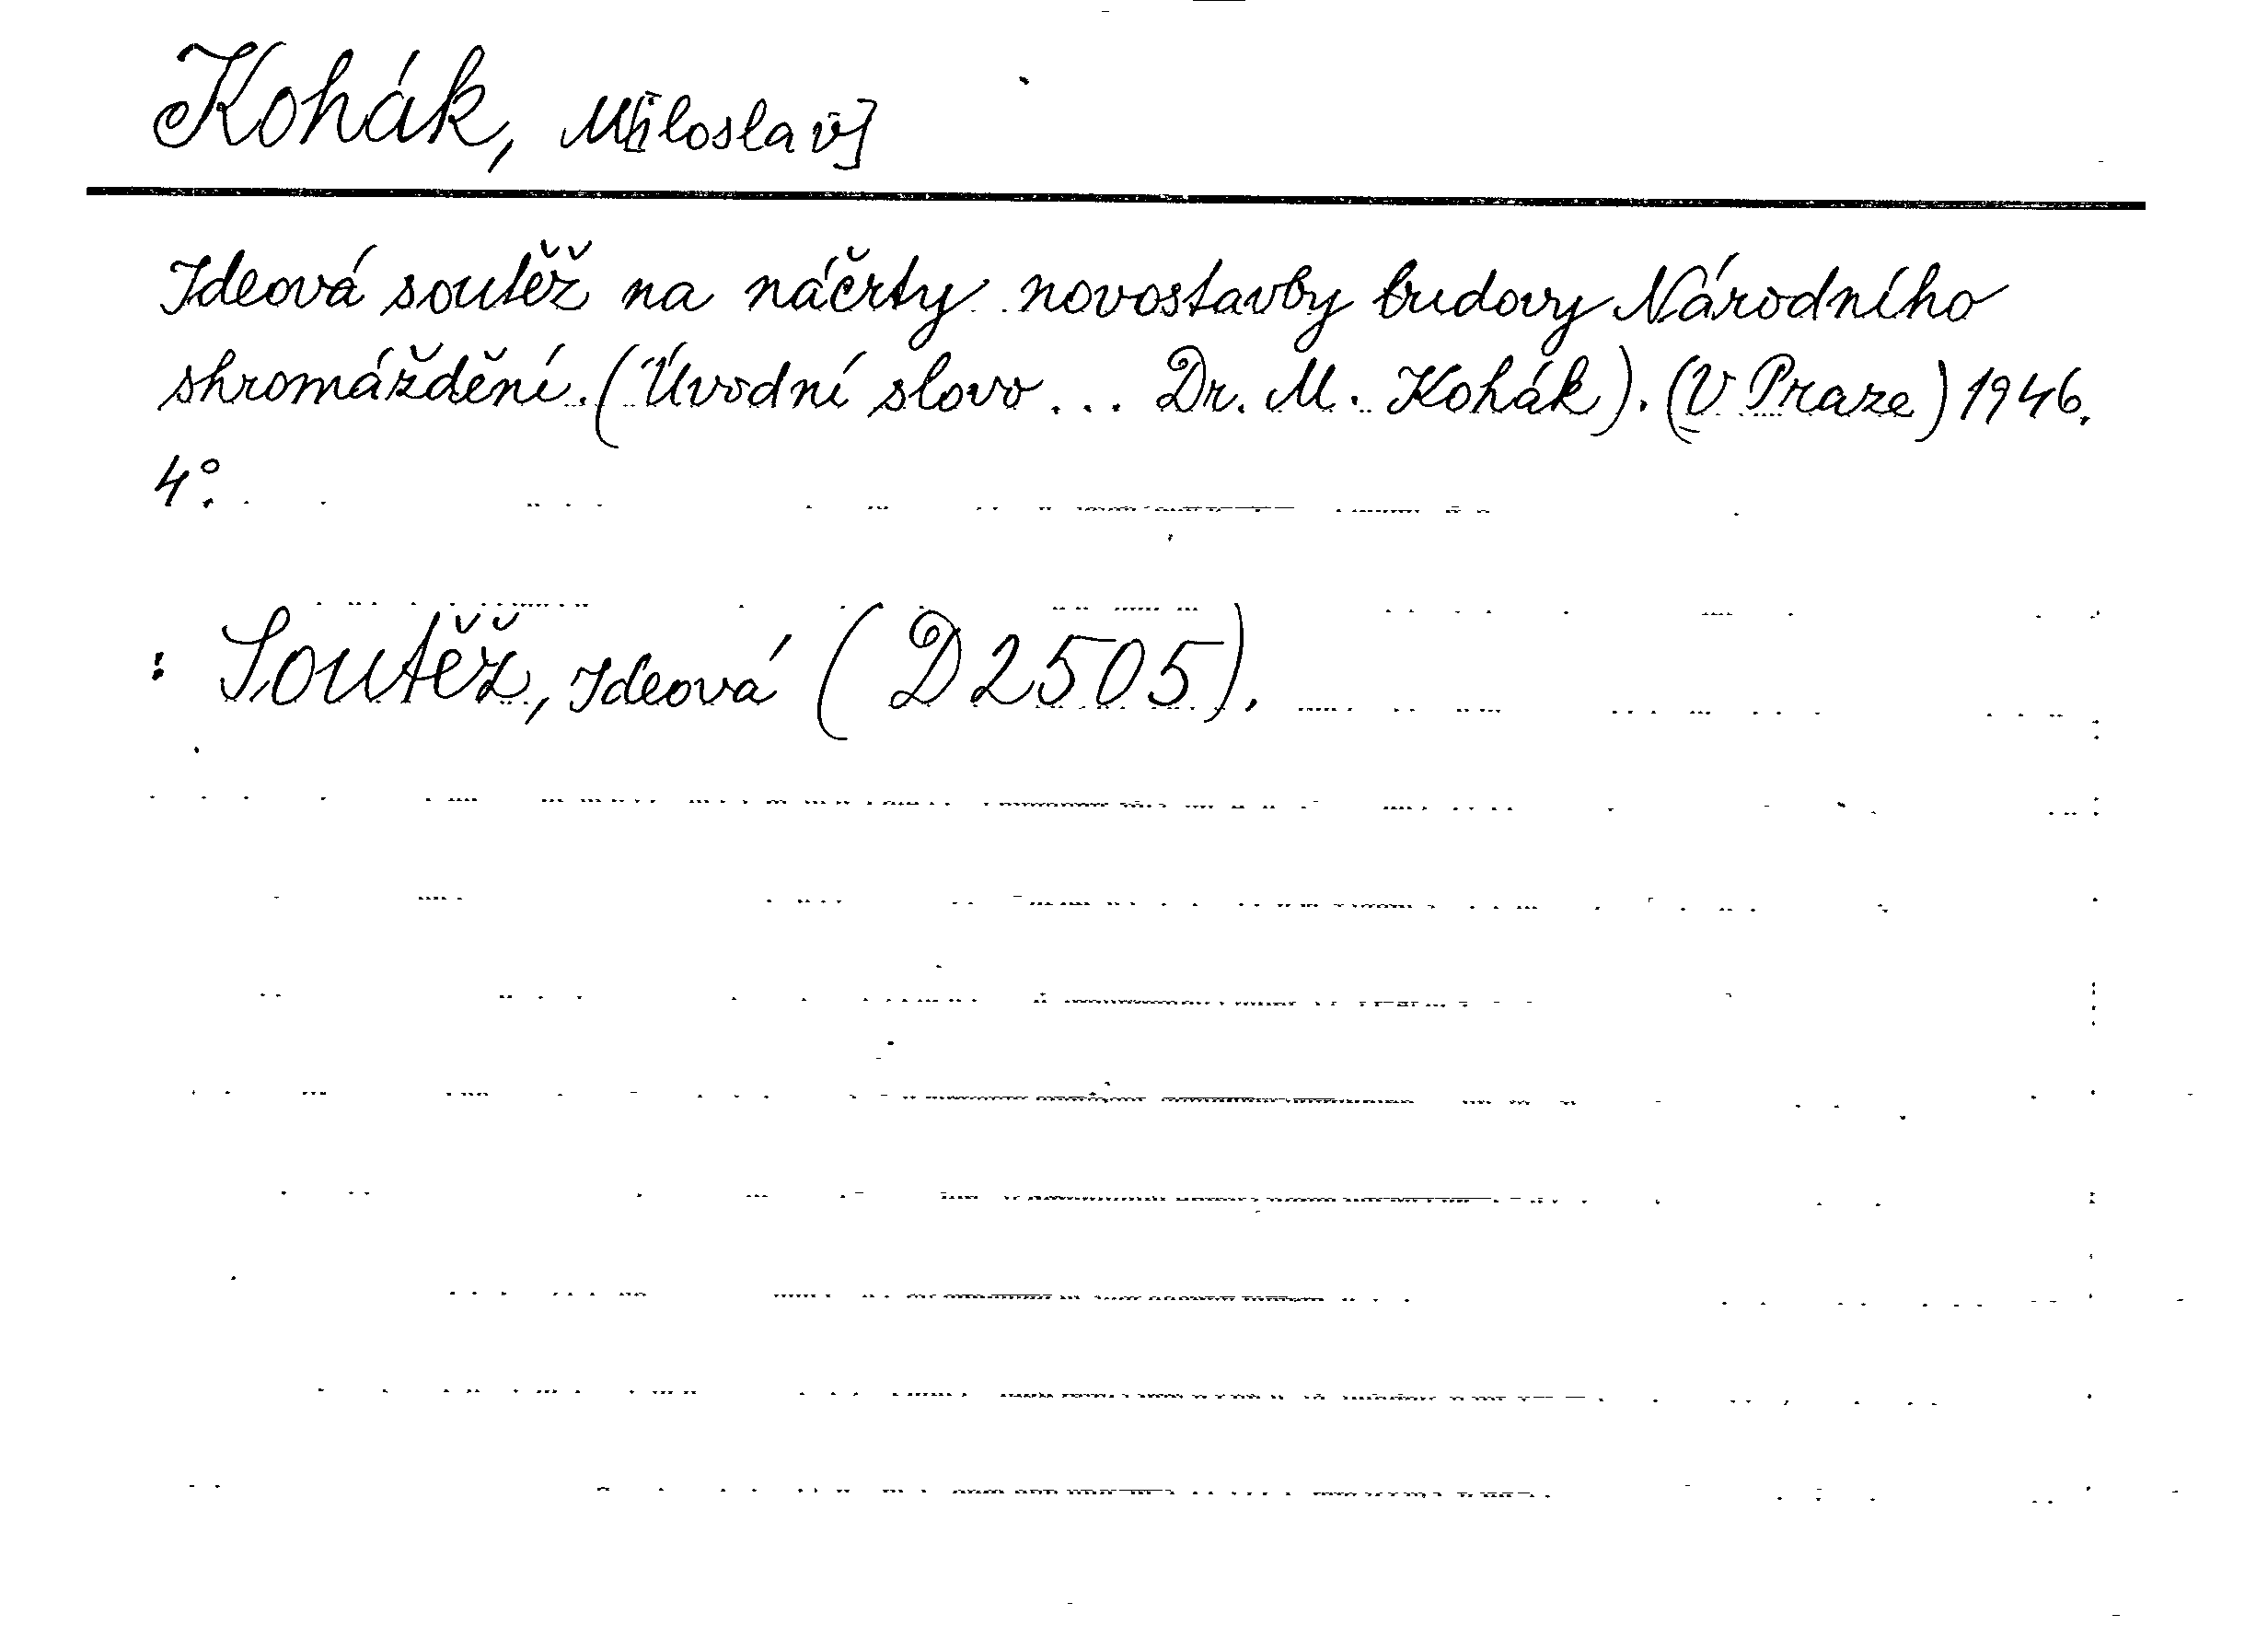 Kohák, M[iloslav]
Ideová soutěž na náčrty novostavby budovy Národního
shromáždění. (Úvodní slovo... Dr. M. Kohák). (V Praze) 1946.
4°.
: Soutěž, Ideová (D 2505).